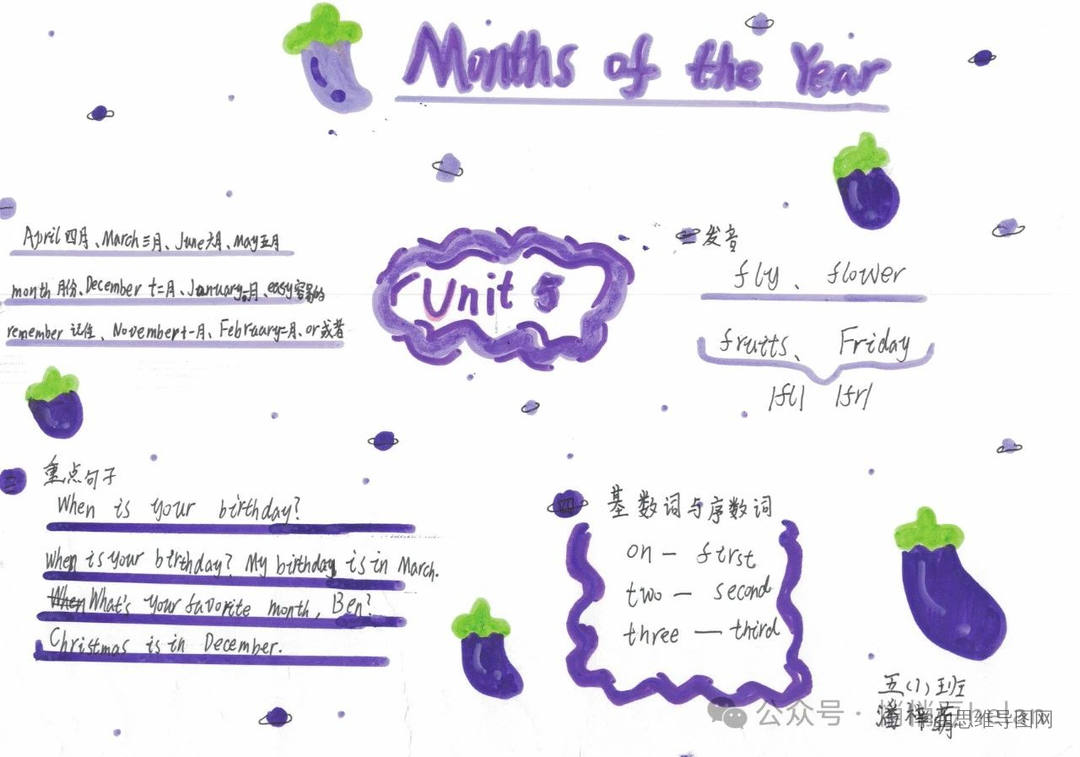 Months of the Year
April四月、March三月、June六月、May五月
month月份、December十二月、January一月、easy容易的
remember记住、November十一月、February二月、or或者
Unit 5
二 发音
fly、 flower
fruits、 Friday
/fl/ /fr/
三 重点句子
When is your birthday?
When is your birthday? My birthday is in March.
What's your favorite month, Ben?
Christmas is in December.
四 基数词与序数词
on — first
two — second
three — third
五(1)班
公众号
思维导图网